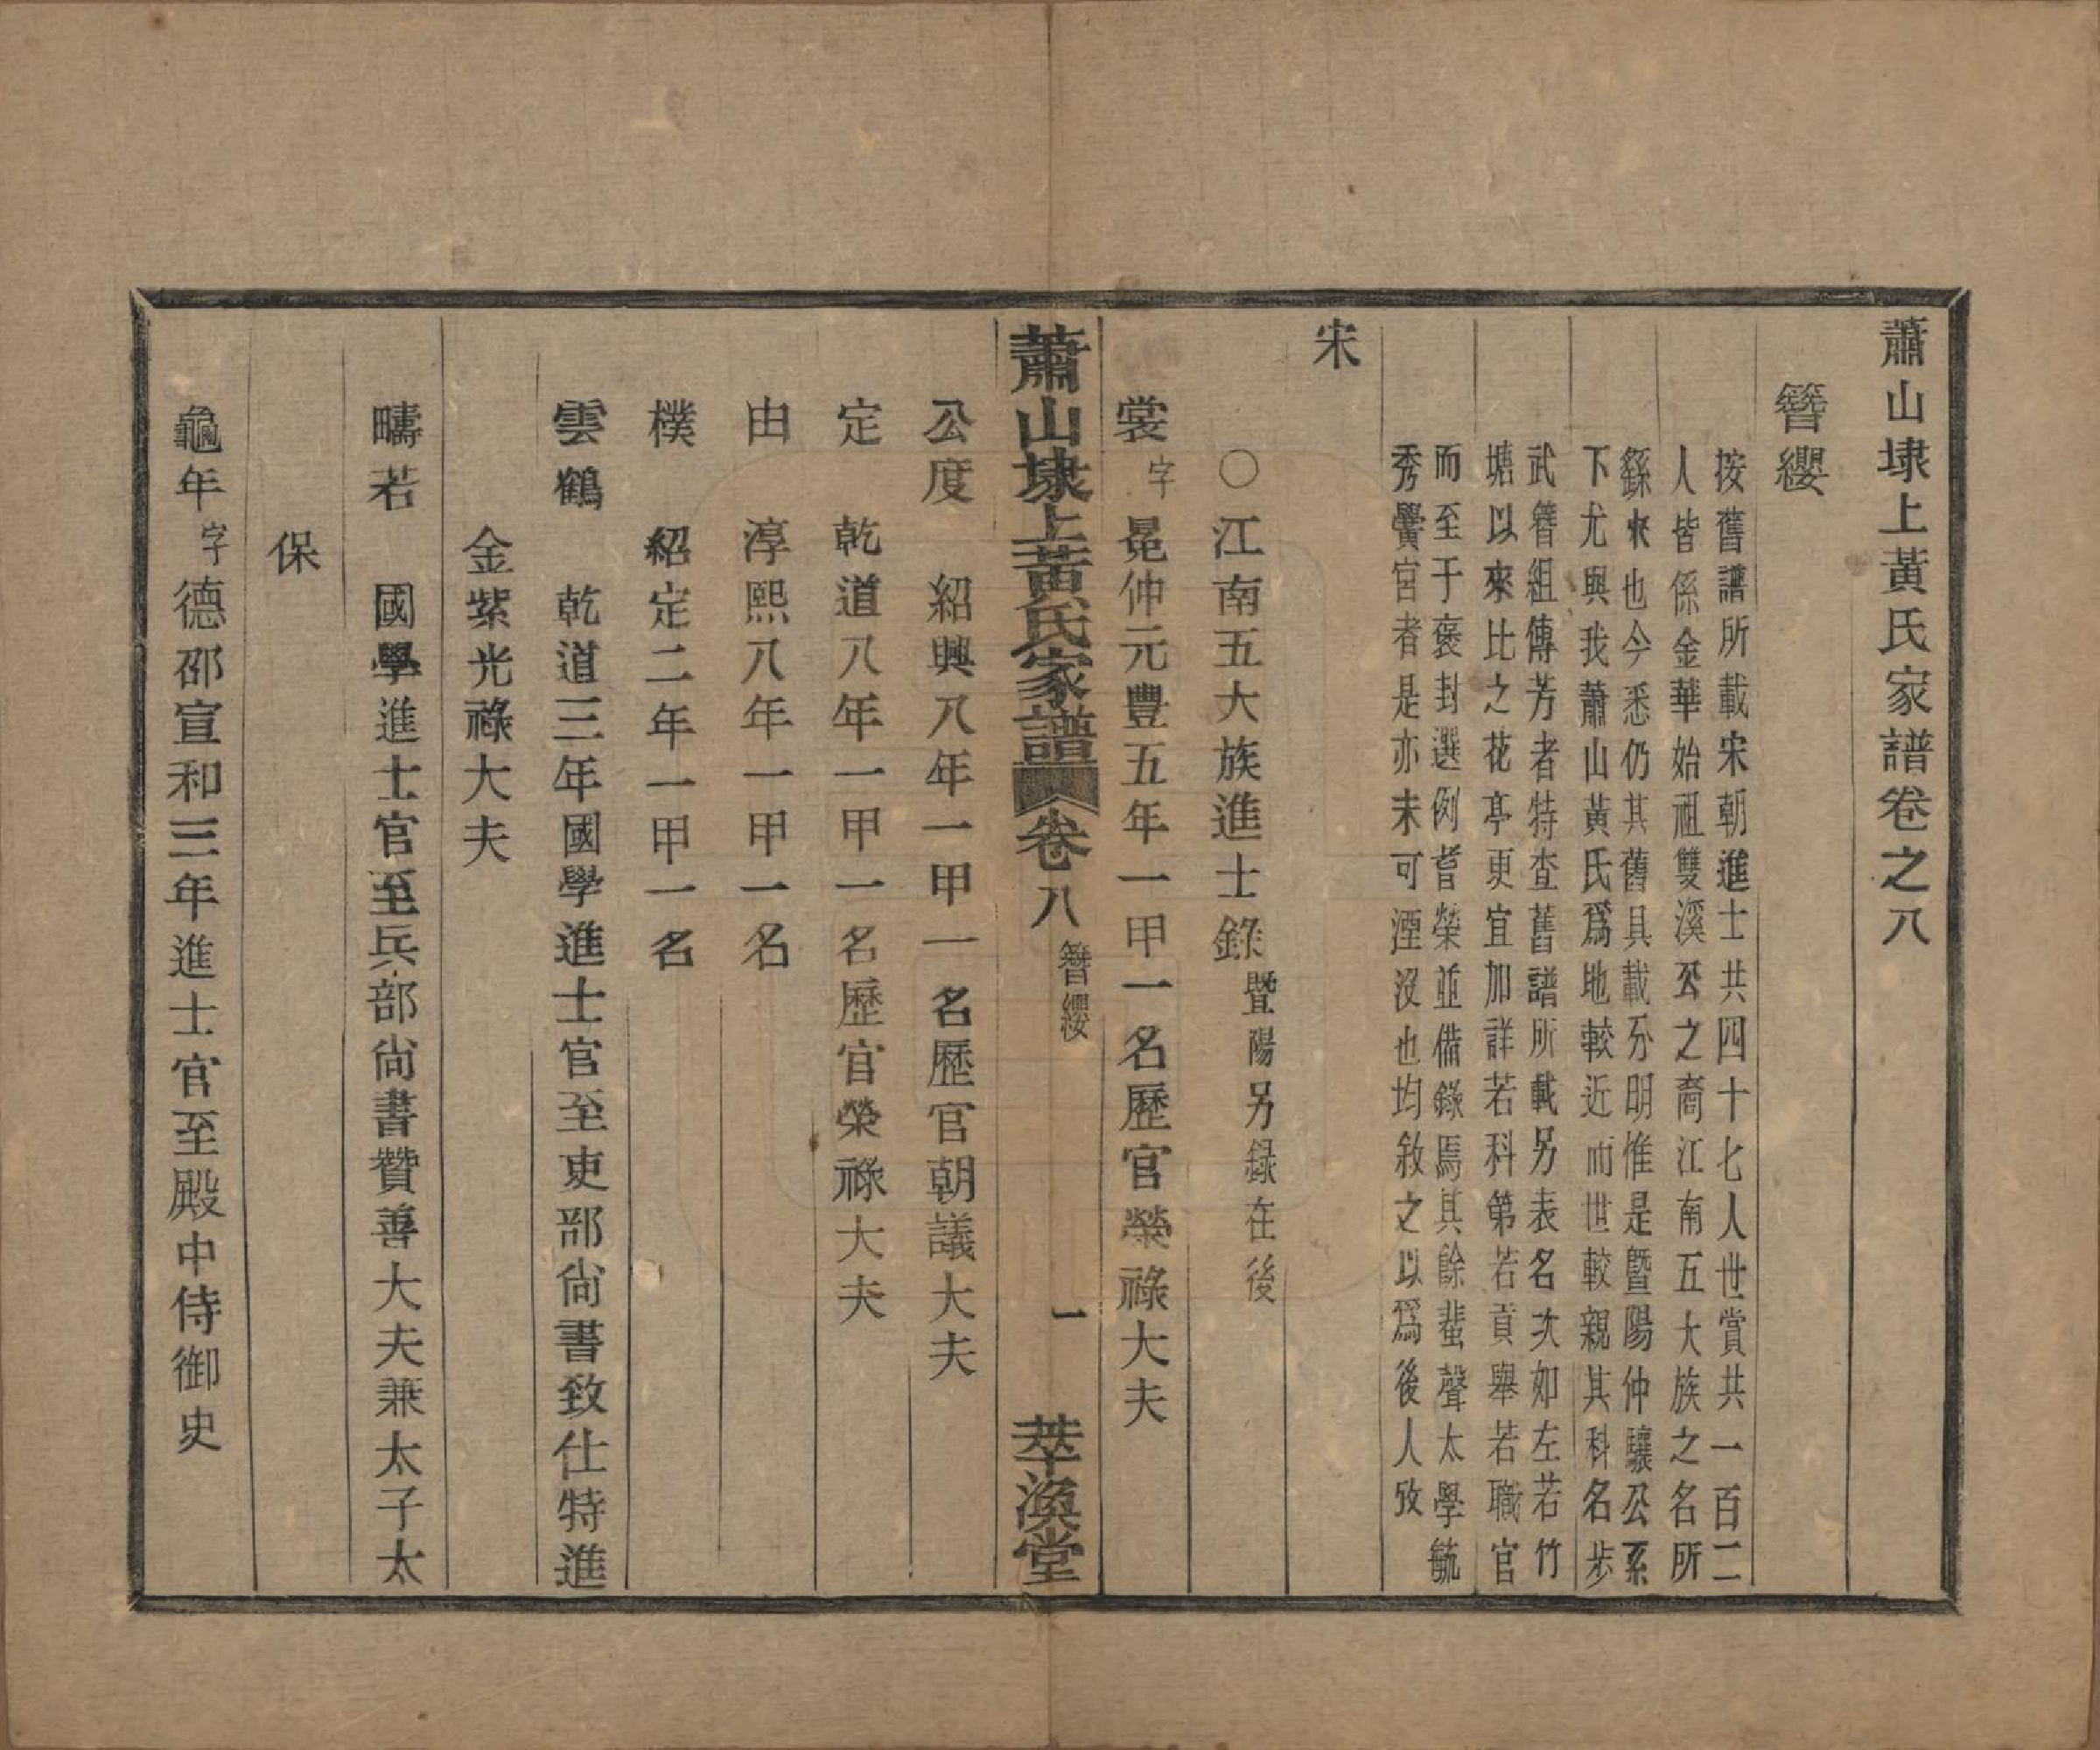 蕭山埭上黃氏家譜卷之八
簪纓
按舊譜所載宋朝進士共四十七人世賞共一百二
人皆係金華始祖雙溪公之裔江南五大族之名所
繇來也今悉仍其舊具載分明惟是暨陽仲驤公系
下尤與我蕭山黃氏爲地較近而世較親其科名步
武簪組傳芳者特查舊譜所載另表名次如左若竹
塘以來比之花亭更宜加詳若科第若貢舉若職官
而至于褒封選例耆榮並備錄焉其餘蜚聲太學毓
秀黌宮者是亦未可湮沒也均敘之以爲後人攷
宋
○江南五大族進士錄暨陽另録在後
裳字冕仲元豐五年一甲一名歷官榮祿大夫
蕭山埭上黃氏家譜 卷八 簪纓 一 萃渙堂
公度 紹興八年一甲一名歷官朝議大夫
定 乾道八年一甲一名歷官榮祿大夫
由 淳熙八年一甲一名
樸 紹定二年一甲一名
雲鶴 乾道三年國學進士官至吏部尙書致仕特進
金紫光祿大夫
疇若 國學進士官至兵部尙書贊善大夫兼太子太
保
龜年字德邵宣和三年進士官至殿中侍御史